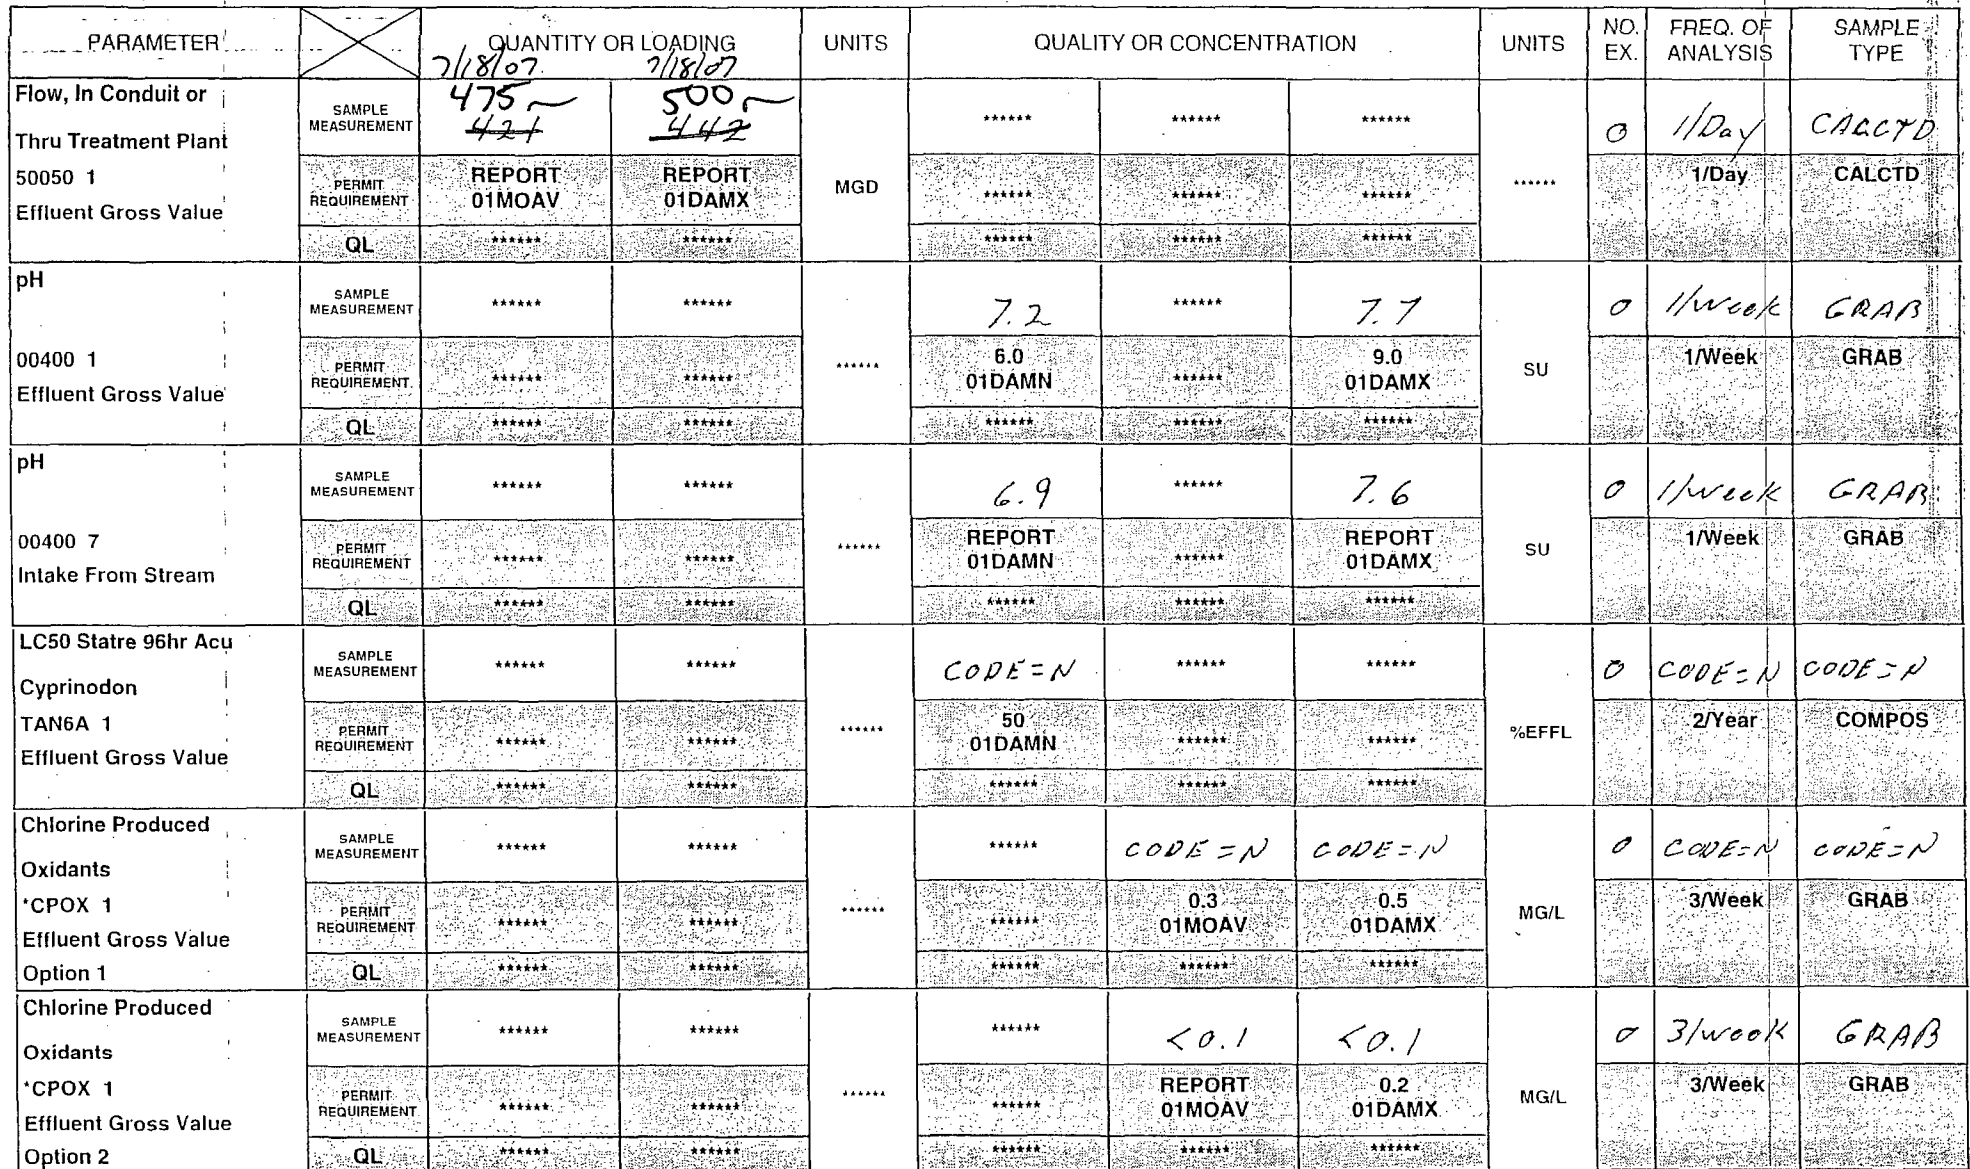 PARAMETER QUANTITY OR LOADING UNITS QUALITY OR CONCENTRATION UNITS NO. EX. FREQ. OF ANALYSIS SAMPLE TYPE
7/18/07 7/18/07
Flow, In Conduit or
Thru Treatment Plant
50050 1
Effluent Gross Value
SAMPLE MEASUREMENT 475 500 ****** ****** ****** 0 1/Day CALCTD
421 442
PERMIT REQUIREMENT REPORT 01MOAV REPORT 01DAMX MGD ****** ****** ****** ****** 1/Day CALCTD
QL ****** ****** ****** ****** ******
pH
00400 1
Effluent Gross Value
SAMPLE MEASUREMENT ****** ****** 7.2 ****** 7.7 0 1/Week GRAB
PERMIT REQUIREMENT ****** ****** ****** 6.0 01DAMN ****** 9.0 01DAMX SU 1/Week GRAB
QL ****** ****** ****** ****** ******
pH
00400 7
Intake From Stream
SAMPLE MEASUREMENT ****** ****** 6.9 ****** 7.6 0 1/Week GRAB
PERMIT REQUIREMENT ****** ****** ****** REPORT 01DAMN ****** REPORT 01DAMX SU 1/Week GRAB
QL ****** ****** ****** ****** ******
LC50 Statre 96hr Acu
Cyprinodon
TAN6A 1
Effluent Gross Value
SAMPLE MEASUREMENT ****** ****** CODE=N ****** ****** 0 CODE=N CODE=N
PERMIT REQUIREMENT ****** ****** ****** 50 01DAMN ****** ****** %EFFL 2/Year COMPOS
QL ****** ****** ****** ****** ******
Chlorine Produced
Oxidants
*CPOX 1
Effluent Gross Value
Option 1
SAMPLE MEASUREMENT ****** ****** ****** CODE=N CODE=N 0 CODE=N CODE=N
PERMIT REQUIREMENT ****** ****** ****** ****** 0.3 01MOAV 0.5 01DAMX MG/L 3/Week GRAB
QL ****** ****** ****** ****** ******
Chlorine Produced
Oxidants
*CPOX 1
Effluent Gross Value
Option 2
SAMPLE MEASUREMENT ****** ****** ****** <0.1 <0.1 0 3/week GRAB
PERMIT REQUIREMENT ****** ****** ****** ****** REPORT 01MOAV 0.2 01DAMX MG/L 3/Week GRAB
QL ****** ****** ****** ****** ******